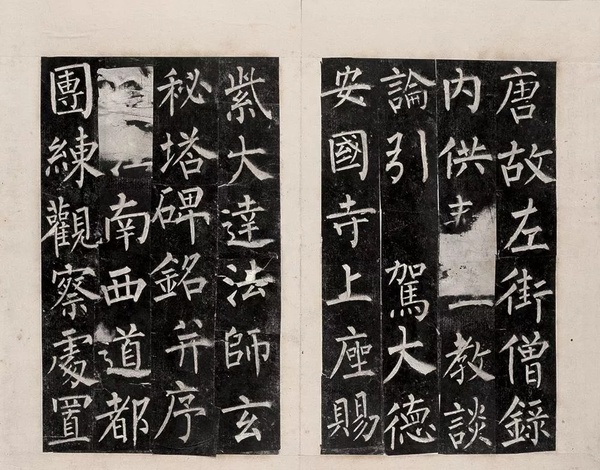 唐故左街僧錄
内供教談
論引 駕大德
安國寺上座賜
紫大達法師玄
秘塔碑銘并序
南西道都
團練觀察處置